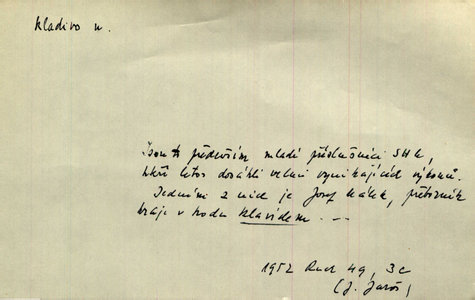 kladivo n.
Jsou to především mladí příslušníci SHK,
kteří letos dosáhli velmi vynikajících výkonů.
Jedním z nich je Josef Málek, přeborník
kraje v hodu kladivem . - -
1952 Ruch 49, 3c
(J. Jaroš)